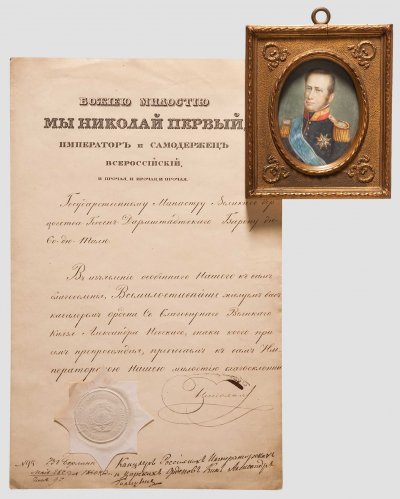 БОЖІЕЮ МИЛОСТІЮ
МЫ НИКОЛАЙ ПЕРВЫЙ,
ИМПЕРАТОРЪ и САМОДЕРЖЕЦЪ
ВСЕРОССІЙСКІЙ,
И ПРОЧАЯ, И ПРОЧАЯ И ПРОЧАЯ.
Государственному Министру Великаго Гер
цогства Гессенъ-Дармштадтскаго Барону дю
Бо-дю-Тиль
Въ изъявленіе особеннаго Нашего къ вамъ
благоволенія, Всемилостивѣйше жалуемъ васъ
кавалеромъ ордена Св. Благовѣрнаго Великаго
Князя Александра Невскаго, знаки коего при
семъ препровождая, пребываемъ къ вамъ Им
ператорскою Нашею милостію благосклонны
Николай
№ Въ Берлинѣ
Канцлеръ Россійскихъ Императорскихъ
и Царскихъ Орденовъ Князь Александръ
Голицынъ